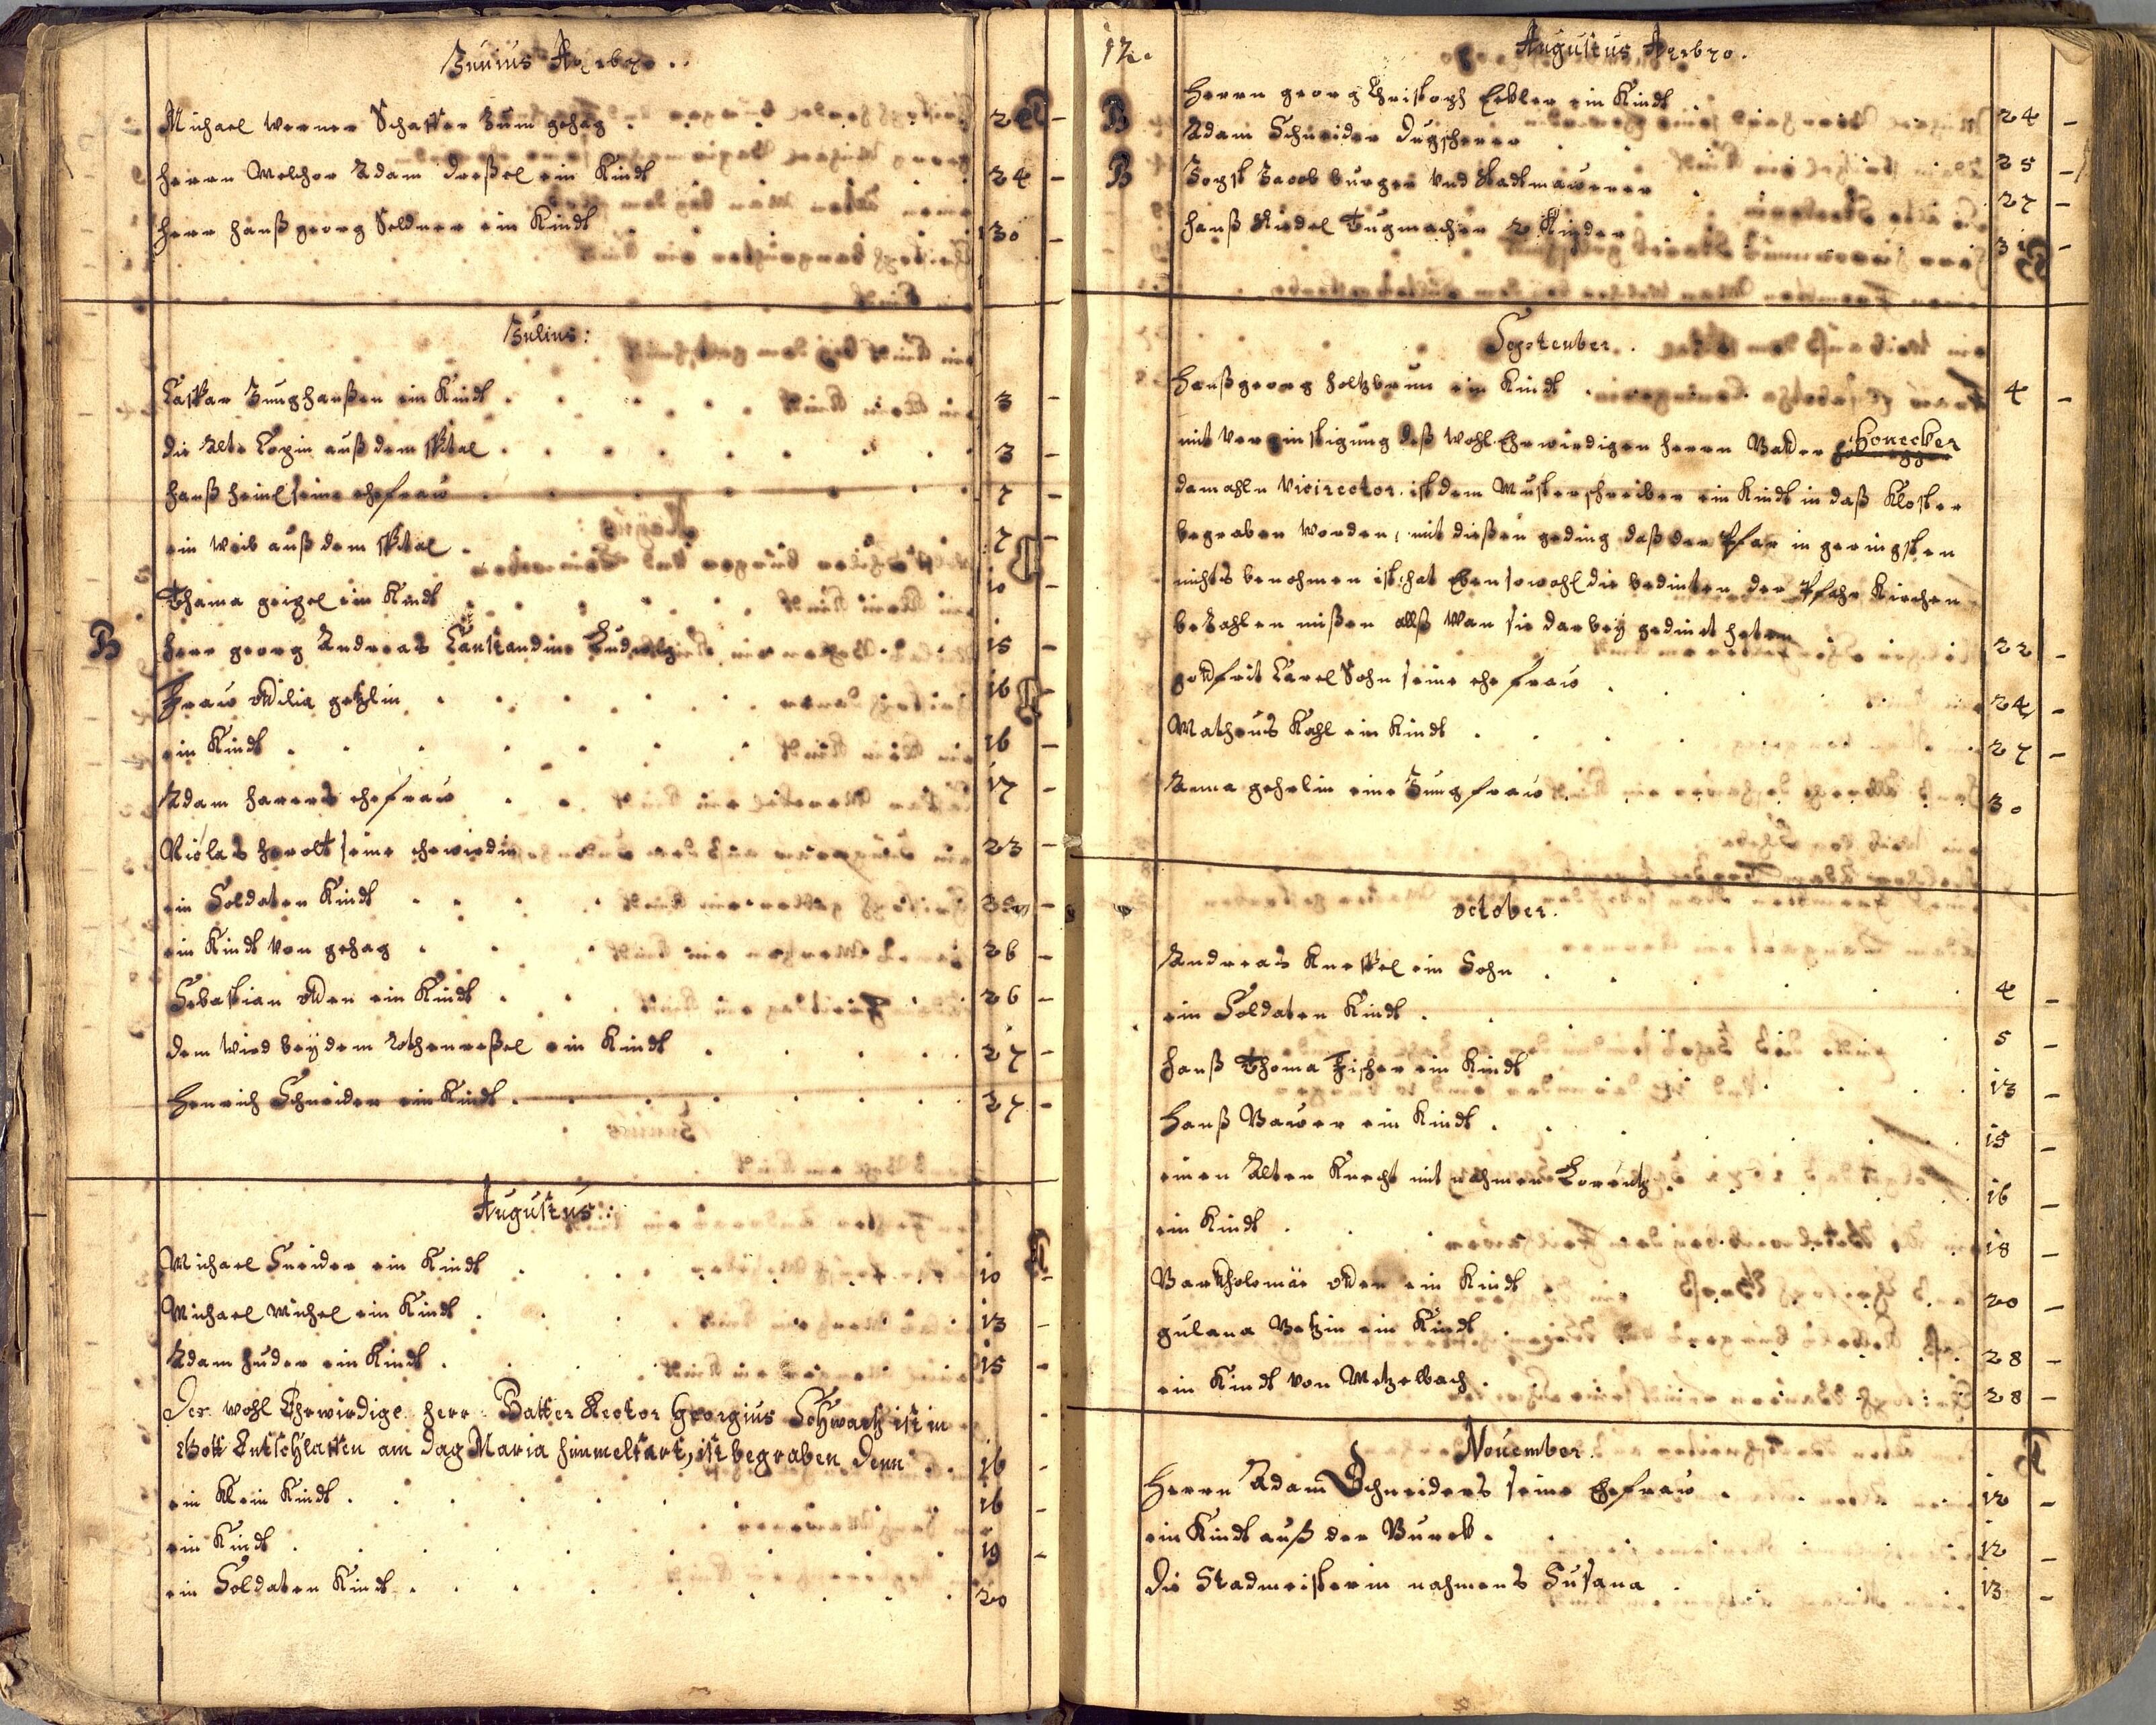 Junius
Michael Werner Schaffer Zum gehag . 24 -
herrn Melchor Adam Dreßel ein Kindt 24 -
herr hanß georg Seldner ein Kindt 30 -
Julius:
Caspar Junghanßen ein Kindt . 3 -
die Alte auß dem spital . 3 -
hanß heinl seine ehefraw . 7 -
ein Weib auß dem spital . 7 -
Thama geigel ein Kindt 10 -
B herr georg Andreas Canstandine Ludwig 15 -
Fraw Otilia getzlin . 16 -
ein Kindt . 16 -
Adam harers ehefraw . 17 -
Niclas herolt seine ehewirdin 23 -
ein Soldaten Kindt -
ein Kindt von gehag . 26 -
Sebastian otten ein Kindt . 26 -
dem Wird bey dem Rothenreßel ein Kindt . 27 -
Henrich Schneider ein Kindt . 27 -
Augustus:
Michael Sneider ein Kindt 10 -
Michael Michel ein Kindt . 13 -
Adam huder ein Kindt . 15 -
Der wohl Ehrwirdige herr Patter Rector Georgius Schwartz ist in -
Gott Entschlaffen am dag Maria himmelfart, ist begraben denn . 16 -
ein Klein Kindt . 16 -
ein Kindt . 19 -
ein Soldaten Kindt . 20
12.
Augustus
herrn georg Christoph ein Kindt . 24 -
B Adam Schneider Dugscherer 25 -
B Jacob burger Vnd Stadtmawerer 27 -
hanß Riedel Tugmacher 2 Kinder
September .
hanß georg holtzbrun ein Kindt . 4 -
mit Vergünstigung deß wohl Ehrwirdigen herrn Patter Honecker
damahln Vicirector . ist dem Musterschreiber ein Kindt in daß Kloster
begraben worden, mit dießen geding daß der Pfar in geringsten
nichts benohmen ist, hat Eben sowohl die bedinten der Pfahr Kirchen
beZahlen mißen alß Wan sie darbey gedinet heten 22 -
gottfrit Carel Sohn seine ehe fraw . 24 -
Matheus Kahl ein Kindt . 27 -
Anna gehrlin eine Jungfraw . 30
october.
Andreas Knespel ein Sohn . 4 -
ein Soldaten Kindt . 5 -
hanß Thoma Fischer ein Kindt 13 -
hanß Bawer ein Kindt . 15 -
einen Alten Knecht mit nahmen Lorentz . 16 -
ein Kindt . 18 -
Bartholomäe otten ein Kindt 20 -
gulana Betzin ein Kindt . 28 -
ein Kindt von Metzelbach . 28 -
November
Herrn Adam Schneiders seine Ehefraw . 12 -
ein Kindt auß der Burck . 12 -
die Stadmeisterin nahmens Susana . 13 -